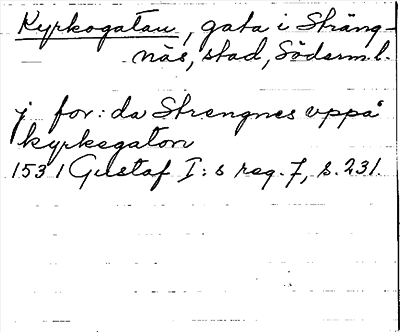 Kyrkogatan, gata i Sträng-
näs, stad, Söderm.l.
j for: da Strengnes uppå
kyrkegaton
1531 Gustaf I:s reg. 7, s. 231.